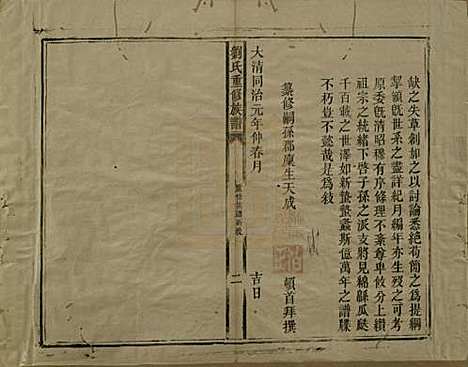 缺之失草創如之以討論悉絕苟簡之為提綱
挈領既世系之盡詳紀月編年亦生歿之可考
原委旣清昭穆有序條理不紊尊卑攸分上纘
祖宗之統緒下啓子孫之派支將見綿緜瓜瓞
千百載之世澤如新螽螽斯億萬年之譜牒
不朽豈不懿哉是為叙
纂修嗣孫郡廩生天成 頓首拜撰
大清同治元年仲春月 吉日
劉氏重修族譜
二